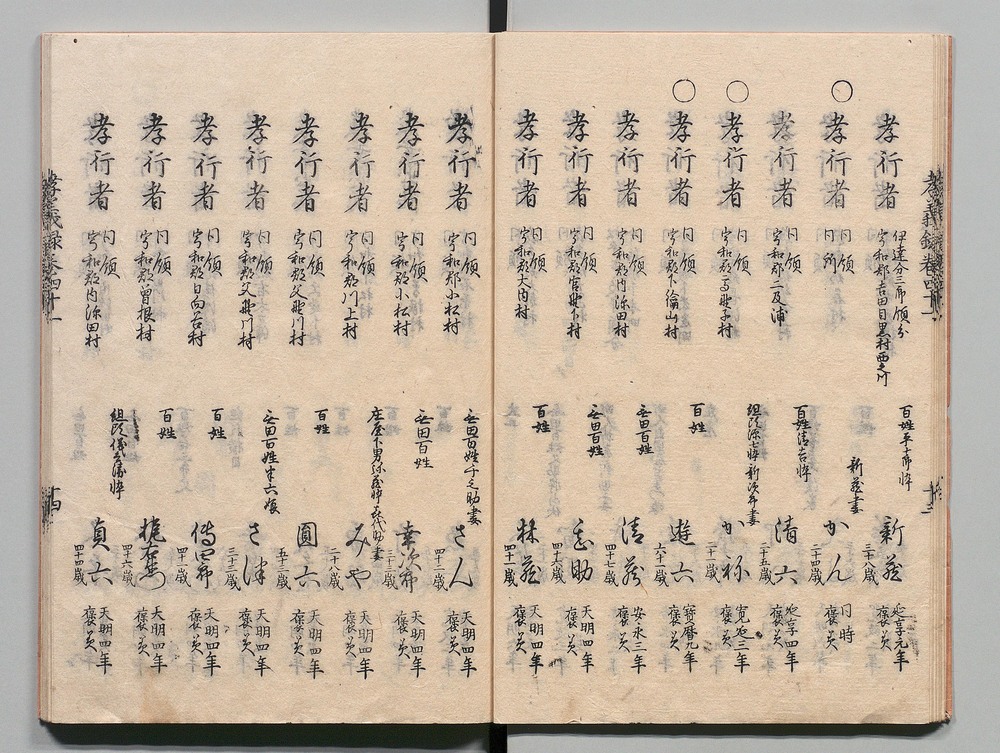 孝義録巻四十一
孝行者
伊達分三郎領分
宇和郡吉田目黒村西之川
百姓平十郎忰
新蔵
三十八歳
延享元年
褒美
○
孝行者
同領
同所
新蔵妻
かん
三十四歳
同時
褒美
孝行者
同領
宇和郡二及浦
百姓清吉忰
清六
二十五歳
延享四年
褒美
○
孝行者
同領
組頭源七忰新次郎妻
かね
二十一歳
寛延三年
褒美
○
孝行者
同領
百姓
遊六
六十一歳
宝暦九年
褒美
孝行者
同領
宇和郡内深田村
無田百姓
清蔵
四十七歳
安永三年
褒美
孝行者
同領
宇和郡宮野下村
無田百姓
四十六歳
天明四年
褒美
孝行者
同領
宇和郡大内村
百姓
林蔵
四十一歳
天明四年
褒美
孝行者
同領
宇和郡小松村
無田百姓千之助妻
さん
四十二歳
天明四年
褒美
孝行者
同領
宇和郡小松村
無田百姓
幸次郎
三十三歳
天明四年
褒美
孝行者
同領
宇和郡川上村
みや
二十八歳
天明四年
褒美
孝行者
同領
宇和郡父野川村
百姓
圓六
五十三歳
天明四年
褒美
孝行者
同領
宇和郡父野川村
無田百姓半六娘
さ津
三十三歳
天明四年
褒美
孝行者
同領
宇和郡日向谷村
百姓
傳四郎
四十一歳
天明四年
褒美
孝行者
同領
宇和郡曽根村
百姓
四十六歳
天明四年
褒美
孝行者
同領
宇和郡内深田村
貞六
四十四歳
天明四年
褒美
孝義録巻四十一
十四